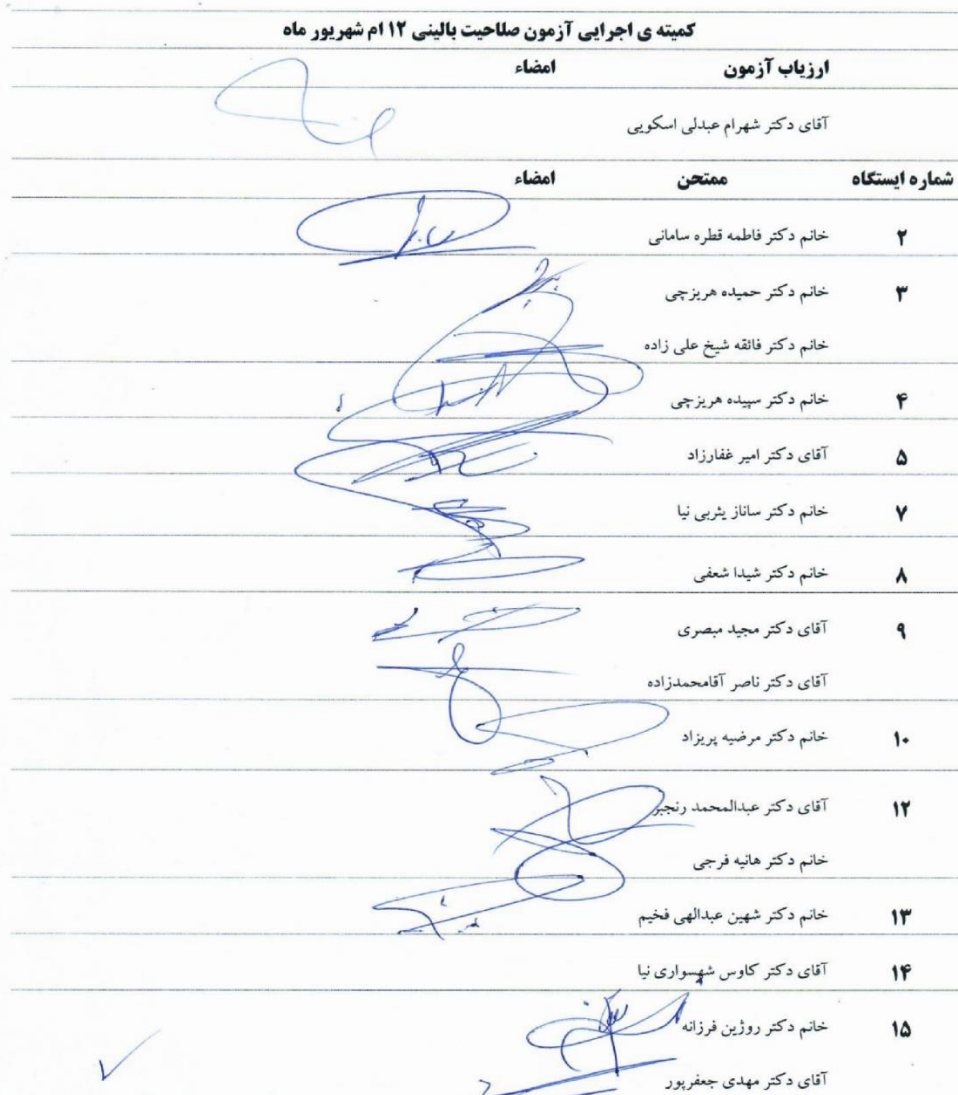 کمیته ی اجرایی آزمون صلاحیت بالینی ۱۲ ام شهریور ماه
ارزیاب آزمون امضاء
آقای دکتر شهرام عبدلی اسکویی
شماره ایستگاه ممتحن امضاء
۲ خانم دکتر فاطمه قطره سامانی
۳ خانم دکتر حمیده هریزچی
خانم دکتر فائقه شیخ علی زاده
۴ خانم دکتر سپیده هریزچی
۵ آقای دکتر امیر غفارزاد
۷ خانم دکتر ساناز یثربی نیا
۸ خانم دکتر شیدا شعفی
۹ آقای دکتر مجید مبصری
آقای دکتر ناصر آقامحمدزاده
۱۰ خانم دکتر مرضیه پریزاد
۱۲ آقای دکتر عبدالمحمد رنجبر
خانم دکتر هانیه فرجی
۱۳ خانم دکتر شهین عبدالهی فخیم
۱۴ آقای دکتر کاوس شهسواری نیا
۱۵ خانم دکتر روژین فرزانه
آقای دکتر مهدی جعفرپور